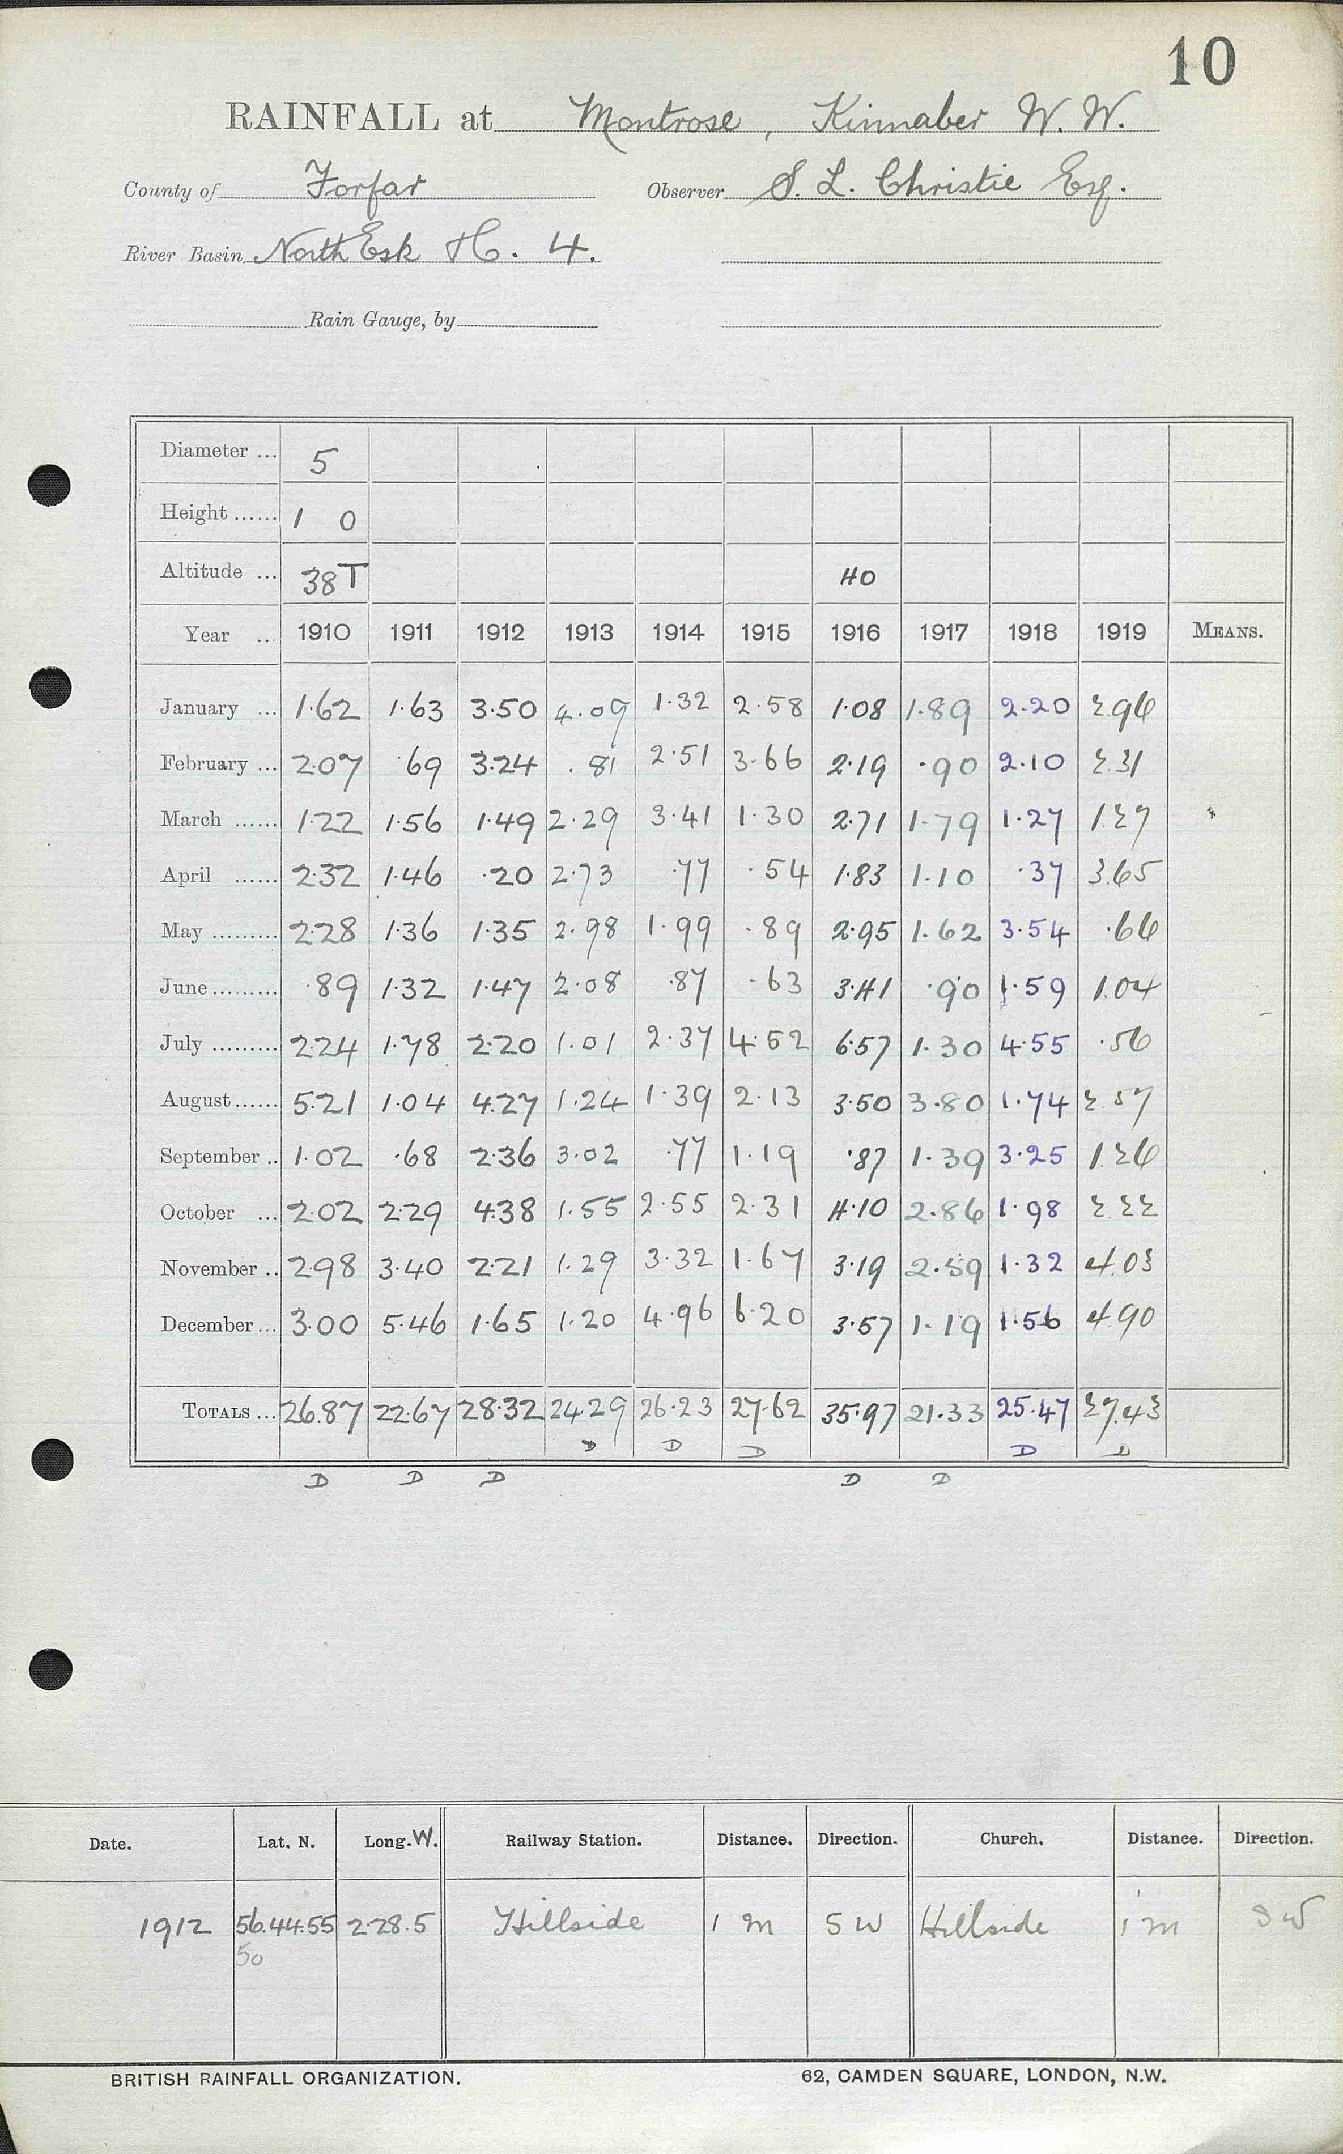 10
RAINFALL at Montrose, Kinnaber W. W.
County of Forfar Observer S. L. Christie Esq.
River Basin North Esk H. 4.
Rain Gauge, by
Diameter ... 5
Height ...... 1 0
Altitude ... 38T 40
Year .. 1910 1911 1912 1913 1914 1915 1916 1917 1918 1919 MEANS.
January ... 1.62 1.63 3.50 4.09 1.32 2.58 1.08 1.89 2.20 2.96
February ... 2.07 .69 3.24 .81 2.51 3.66 2.19 .90 2.10 2.31
March ...... 1.22 1.56 1.49 2.29 3.41 1.30 2.71 1.79 1.27 1.27
April ...... 2.32 1.46 .20 2.73 .77 .54 1.83 1.10 .37 3.65
May ......... 2.28 1.36 1.35 2.98 1.99 .89 2.95 1.62 3.54 .66
June ......... .89 1.32 1.47 2.08 .87 .63 3.41 .90 1.59 1.04
July ......... 2.24 1.78 2.20 1.01 2.37 4.52 6.57 1.30 4.55 .56
August ...... 5.21 1.04 4.27 1.24 1.39 2.13 3.50 3.80 1.74 2.57
September .. 1.02 .68 2.36 3.02 .77 1.19 .87 1.39 3.25 1.26
October ... 2.02 2.29 4.38 1.55 2.55 2.31 4.10 2.86 1.98 2.22
November .. 2.98 3.40 2.21 1.29 3.32 1.67 3.19 2.59 1.32 4.03
December ... 3.00 5.46 1.65 1.20 4.96 6.20 3.57 1.19 1.56 4.90
TOTALS ... 26.87 22.67 28.32 24.29 26.23 27.62 35.97 21.33 25.47 27.43
D D D D D
D D D D D
Date. Lat. N. Long. W. Railway Station. Distance. Direction. Church. Distance. Direction.
1912 56.44.55 2.28.5 Hillside 1 m SW Hillside 1 m SW
50
BRITISH RAINFALL ORGANIZATION. 62, CAMDEN SQUARE, LONDON, N.W.